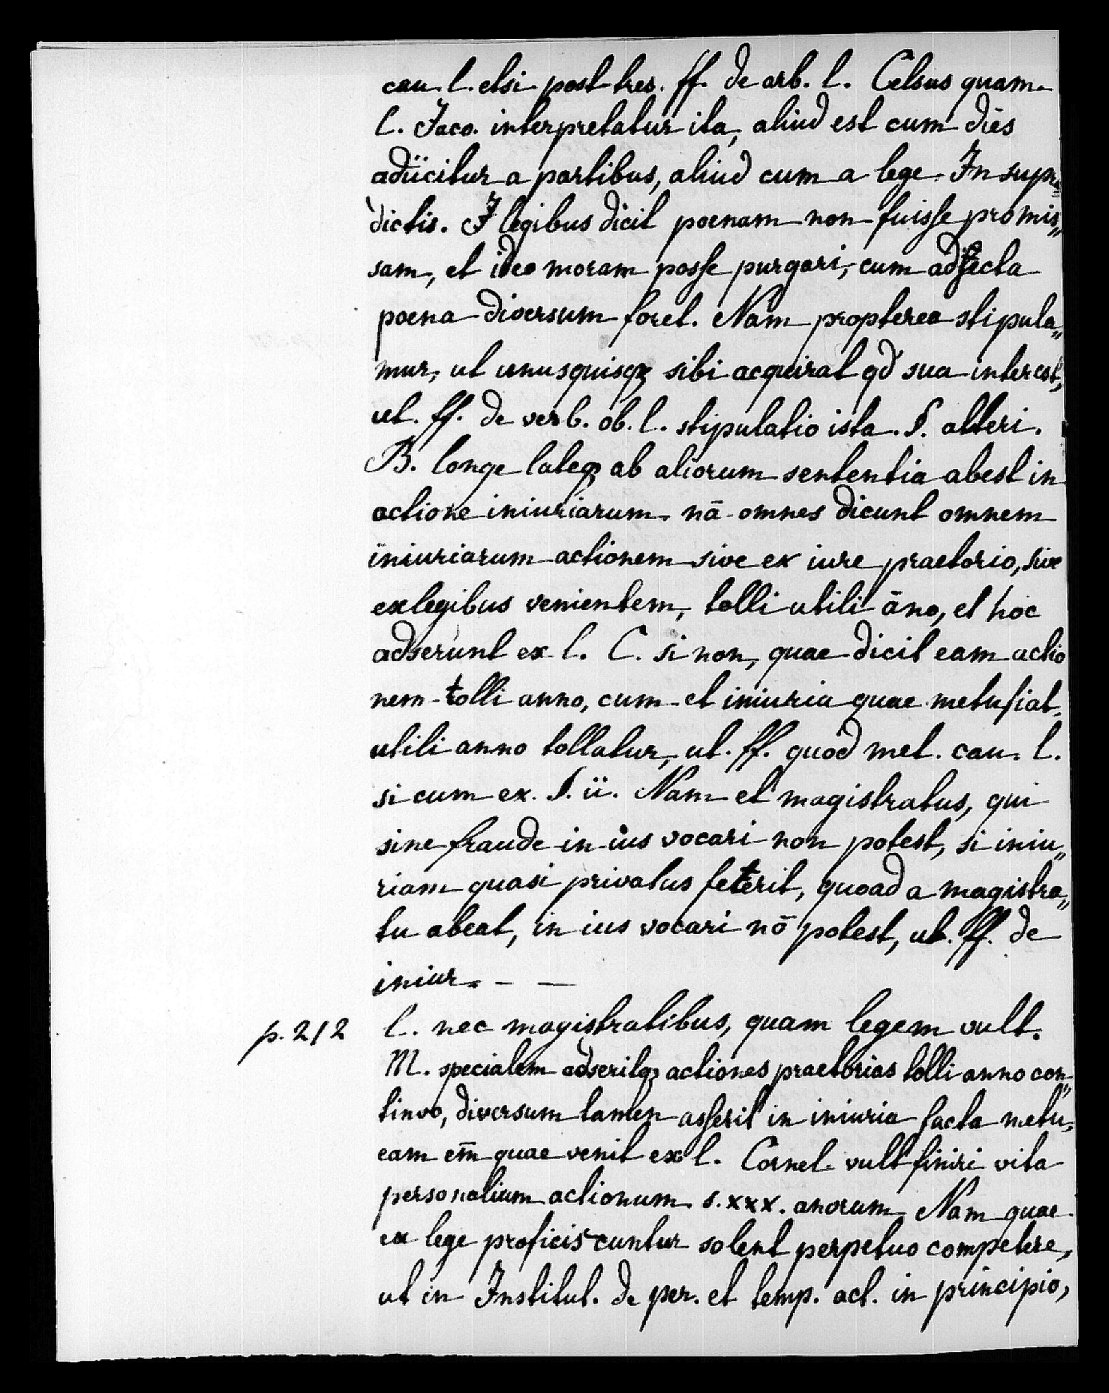 cau. l. etsi post tres. ff. de arb. l. Celsus quam
l. Jaco. interpretatur ita, aliud est cum dies
adiicitur a partibus, aliud cum a lege. In supra„
dictis. J legibus dicit poenam non fuisse promis„
sam, et ideo moram posse purgari, cum adjecta
poena diversum foret. Nam propterea stipula„
mur, ut unusquisqz sibi acquirat qd sua interest,
ut. ff. de verb. ob. l. stipulatio ista. §. alteri.
B. longe lateqz ab aliorum sententia abest in
actione iniuriarum. nā omnes dicunt omnem
iniuriarum actionem sive ex iure praetorio, sive
ex legibus venientem, tolli utili āno, et hoc
adserunt ex l. C. si non, quae dicit eam actio
nem tolli anno, cum et iniuria quae metu fiat,
utili anno tollatur, ut. ff. quod met. cau. l.
si cum ex. §. ii. Nam et magistratus, qui
sine fraude in ius vocari non potest, si iniu„
riam quasi privatus fecerit, quoad a magistra„
tu abeat, in ius vocari nō potest, ut. ff. de
iniur. — —
p. 212 l. nec magistratibus, quam legem vult.
M. specialem adseritqz actiones praetorias tolli anno con„
tinvo, diversum tamen asserit in iniuria facta metu,
eam em̄ quae venit ex l. Cornel. vult finiri vita
personalium actionum s. xxx. anorum. Nam quae
ex lege proficiscuntur solent perpetuo competere,
ut in Institut. de per. et temp. act. in principio,